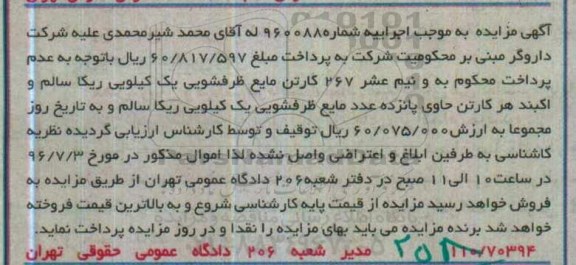 آگهی مزایده به موجب اجراییه شماره۹۶۰۰۸۸ له آقای محمد شیرمحمدی علیه شرکت
داروگر مبنی بر محکومیت شرکت به پرداخت مبلغ ۶۰/۸۱۷/۵۹۷ ریال باتوجه به عدم
پرداخت محکوم به و نیم عشر ۲۶۷ کارتن مایع ظرفشویی یک کیلویی ریکا سالم و
اکبند هر کارتن حاوی پانزده عدد مایع ظرفشویی یک کیلویی ریکا سالم و به تاریخ روز
مجموعا به ارزش۶۰/۰۷۵/۰۰۰ ریال توقیف و توسط کارشناس ارزیابی گردیده نظریه
کاشناسی به طرفین ابلاغ و اعتراضی واصل نشده لذا اموال مذکور در مورخ ۹۶/۷/۳
در ساعت۱۰ الی۱۱ صبح در دفتر شعبه۲۰۶ دادگاه عمومی تهران از طریق مزایده به
فروش خواهد رسید مزایده از قیمت پایه کارشناسی شروع و به بالاترین قیمت فروخته
خواهد شد برنده مزایده می باید بهای مزایده را نقدا و در روز مزایده پرداخت نماید.
۱۱۰/۷۰۳۹۴ مدیر شعبه ۲۰۶ دادگاه عمومی حقوقی تهران